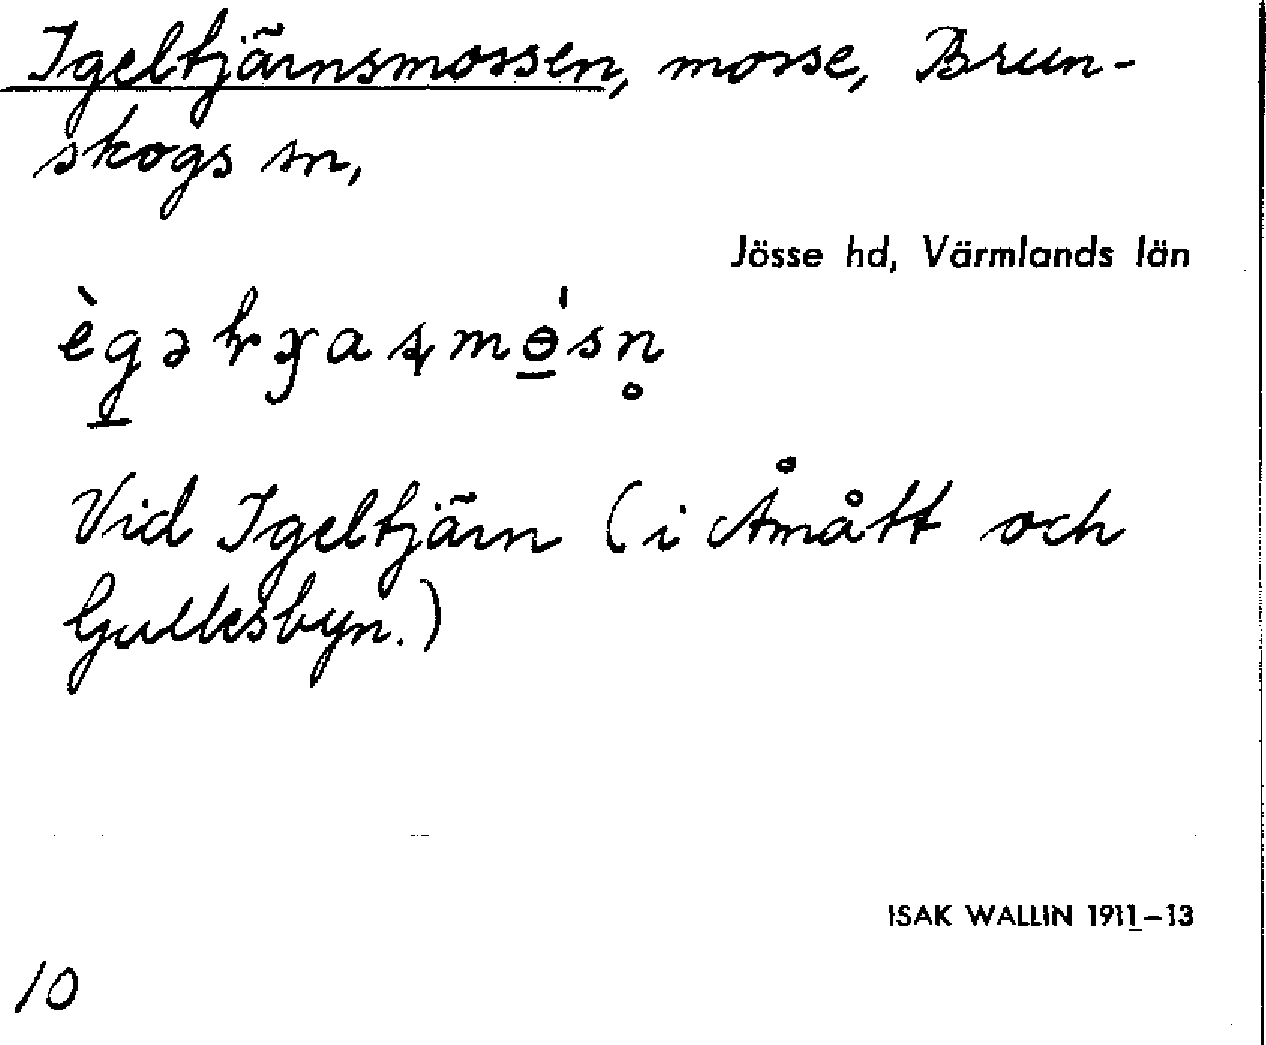 Igeltjärnsmossen, mosse, Brun-
skogs sn,
Jösse hd, Värmlands län
Vid Igeltjärn (i Åmått och
Gullesbyn.)
ISAK WALLIN 1911–13
10